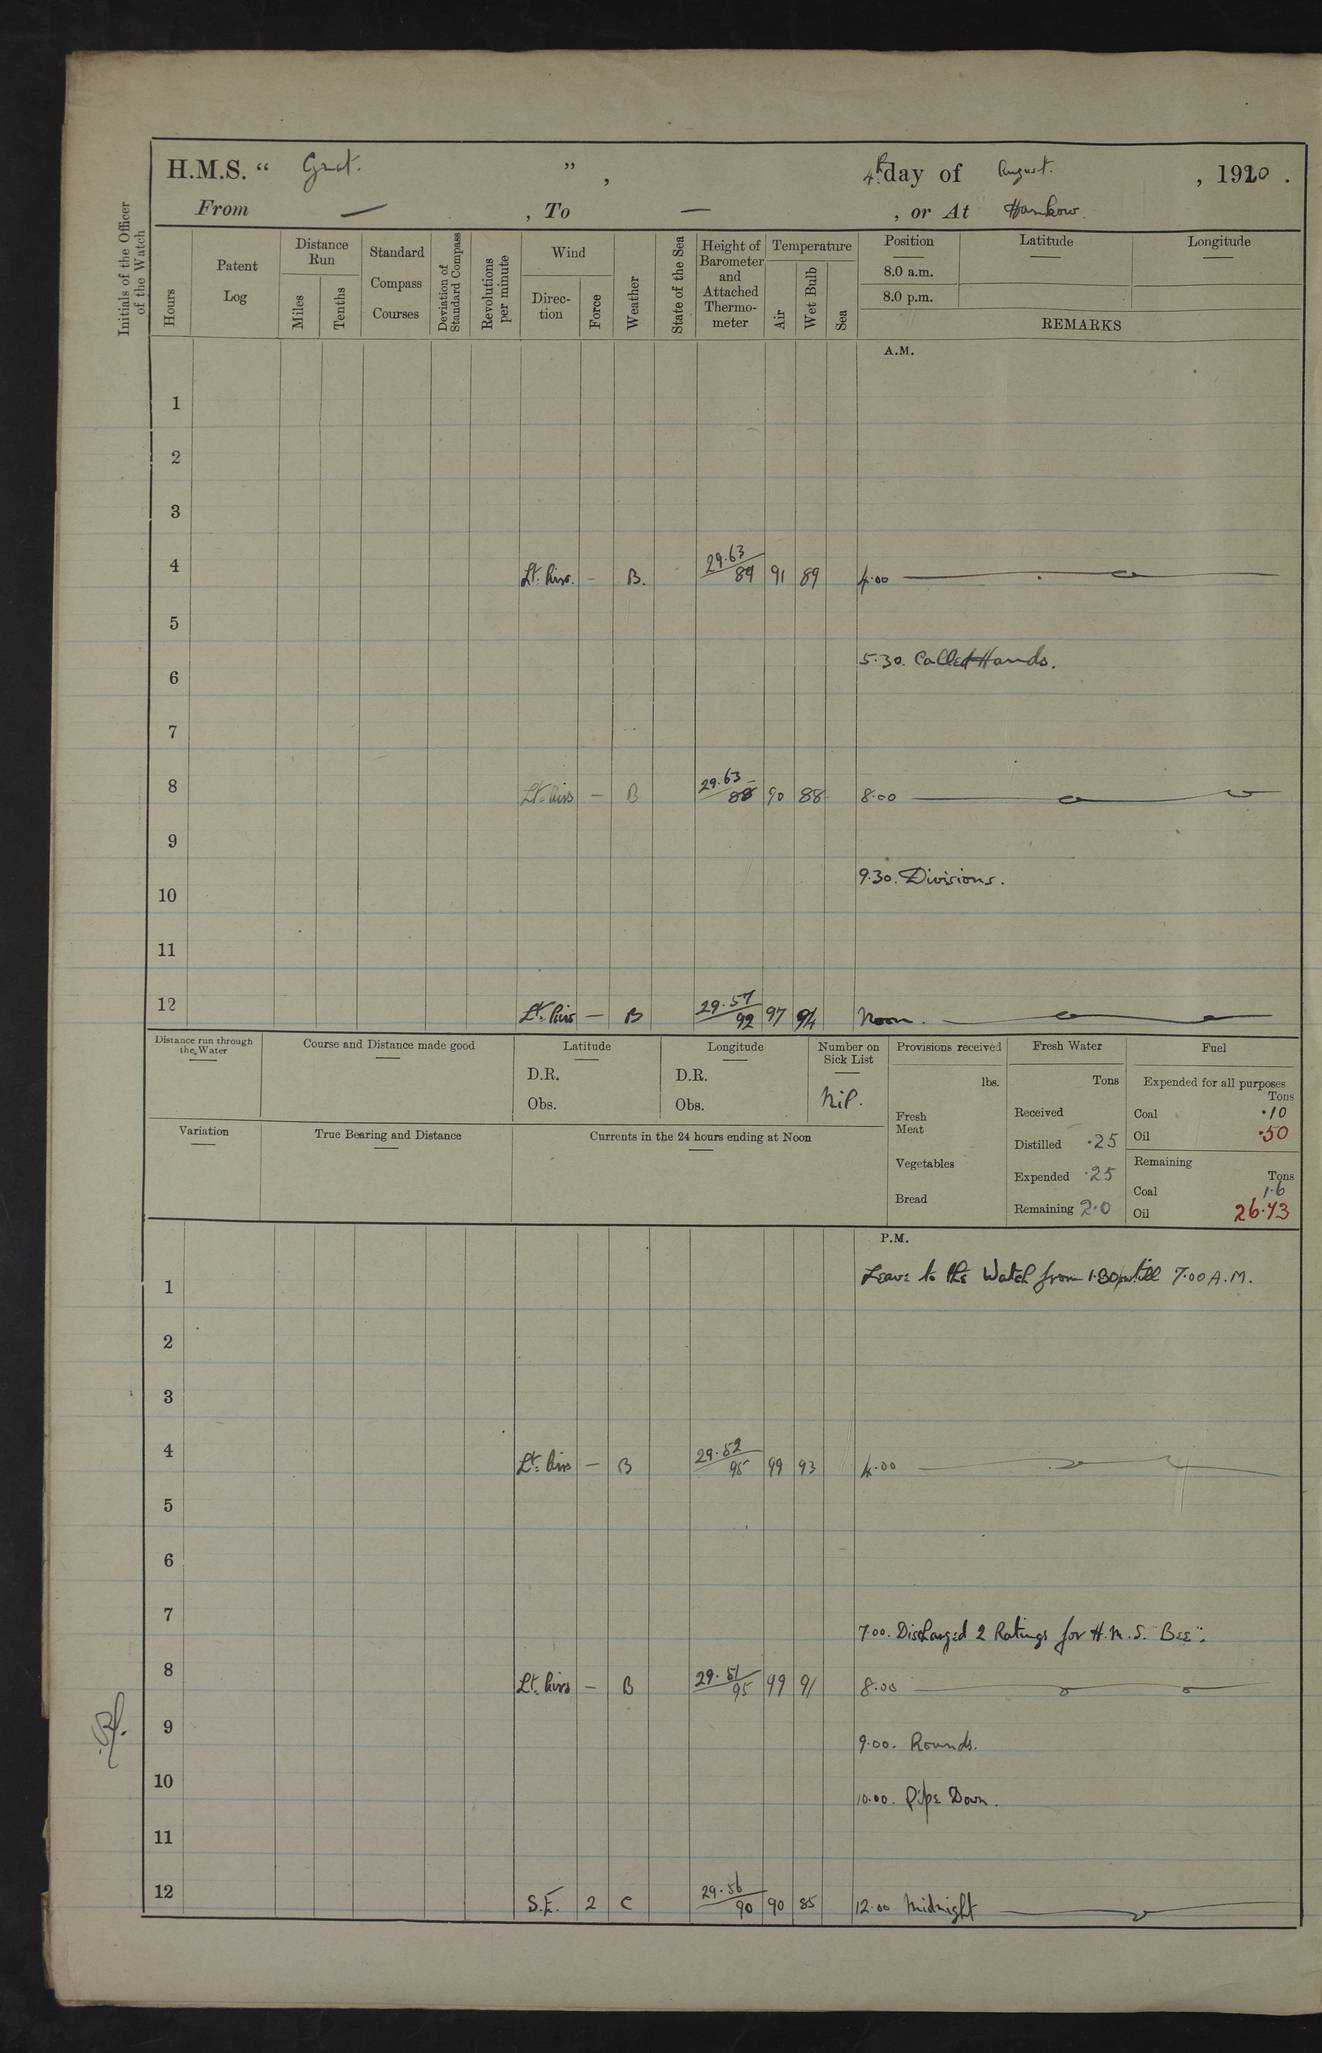 H.M.S. " Gnat. " , 4th day of August. , 1920 .
From — , To — , or At Hankow.
Initials of the Officer of the Watch
Hours
Patent Log
Distance Run
Miles
Tenths
Standard Compass Courses
Deviation of Standard Compass
Revolutions per minute
Wind
Direction
Force
Weather
State of the Sea
Height of Barometer and Attached Thermometer
Temperature
Air
Wet Bulb
Sea
Position Latitude Longitude
8.0 a.m.
8.0 p.m.
REMARKS
A.M.
1
2
3
4 Lt. Airs. — B. 29.63 89 91 89 4.00
5
5.30. Called Hands.
6
7
8 Lt. Airs — B 29.63 88 90 88 8.00
9
9.30. Divisions.
10
11
12 Lt. Airs — B 29.57 92 97 94 Noon.
Distance run through the Water
Course and Distance made good
Latitude
D.R.
Obs.
Longitude
D.R.
Obs.
Number on Sick List
Nil.
Provisions received
lbs.
Fresh Meat
Vegetables
Bread
Fresh Water
Tons
Received
Distilled .25
Expended .25
Remaining 2.0
Fuel
Expended for all purposes
Tons
Coal .10
Oil .50
Remaining
Tons
Coal 1.6
Oil 26.43
Variation
True Bearing and Distance
Currents in the 24 hours ending at Noon
P.M.
Leave to the Watch from 1.30 pm till 7.00 A.M.
1
2
3
4 Lt. Airs — B 29.52 95 99 93 4.00
5
6
7
7.00. Discharged 2 Ratings for H.M.S. "Bee".
8 Lt. Airs — B 29.51 95 99 91 8.00
9
9.00. Rounds.
10
10.00. Pipe Down.
11
12 S.E. 2 C 29.56 90 90 85 12.00 Midnight